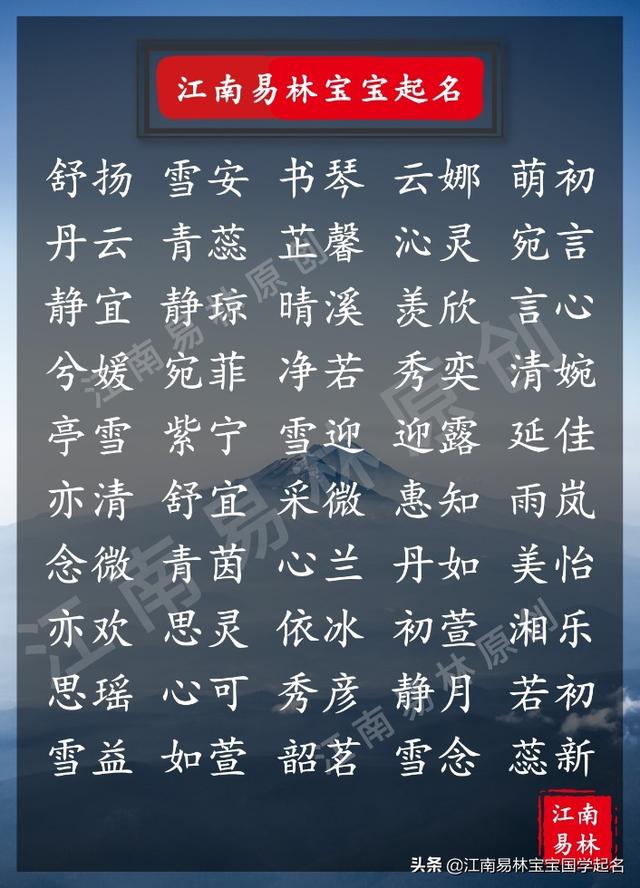 江南易林宝宝起名
舒扬 雪安 书琴 云娜 萌初
丹云 青蕊 芷馨 沁灵 宛言
静宜 静琼 晴溪 羡欣 言心
兮媛 宛菲 净若 秀奕 清婉
亭雪 紫宁 雪迎 迎露 延佳
亦清 舒宜 采微 惠知 雨岚
念微 青茵 心兰 丹如 美怡
亦欢 思灵 依冰 初萱 湘乐
思瑶 心可 秀彦 静月 若初
雪益 如萱 韶茗 雪念 蕊新
江南易林原创
江南易林原创
江南易林原创
江南
易林
头条 @江南易林宝宝国学起名